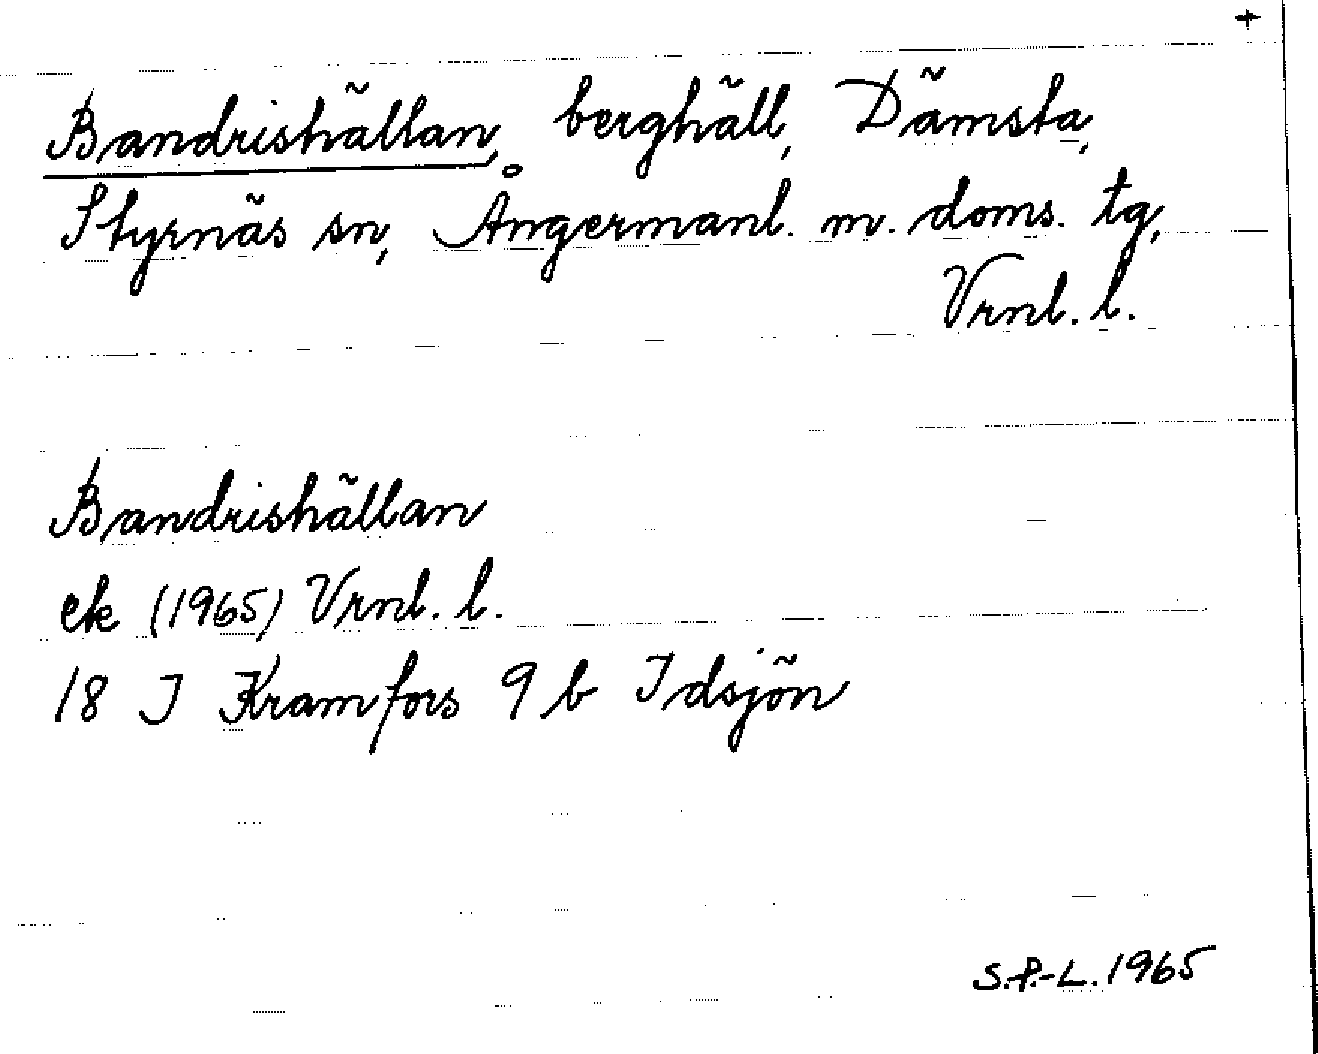 +
Bandrishällan, berghäll, Dämsta,
Styrnäs sn, Ångermanl. m. doms. tg,
Vrnl. l.
Bandrishällan
ek (1965) Vrnl. l.
18 J Kramfors 9 b Idsjön
S.P.-L. 1965